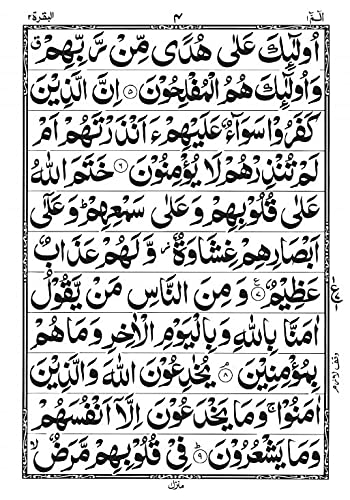 الٓمّٓ ١ ٤ البقرة ٢
اُولٰٓئِكَ عَلٰى هُدًى مِّنْ رَّبِّهِمْ ۙ
وَاُولٰٓئِكَ هُمُ الْمُفْلِحُوْنَ ۝٥ اِنَّ الَّذِيْنَ
كَفَرُوْا سَوَآءٌ عَلَيْهِمْ ءَاَنْذَرْتَهُمْ اَمْ
لَمْ تُنْذِرْهُمْ لَا يُؤْمِنُوْنَ ۝٦ خَتَمَ اللّٰهُ
عَلٰى قُلُوْبِهِمْ وَعَلٰى سَمْعِهِمْ ؕ وَعَلٰٓى
اَبْصَارِهِمْ غِشَاوَةٌ ز وَّلَهُمْ عَذَابٌ
عَظِيْمٌ ۝٧ ع وَمِنَ النَّاسِ مَنْ يَّقُوْلُ
اٰمَنَّا بِاللّٰهِ وَبِالْيَوْمِ الْاٰخِرِ وَمَا هُمْ
بِمُؤْمِنِيْنَ ۝٨ۘ يُخٰدِعُوْنَ اللّٰهَ وَالَّذِيْنَ
اٰمَنُوْا ۚ وَمَا يَخْدَعُوْنَ اِلَّاۤ اَنْفُسَهُمْ
وَمَا يَشْعُرُوْنَ ۝٩ؕ فِيْ قُلُوْبِهِمْ مَّرَضٌ ۙ
منزل
وقف لازم